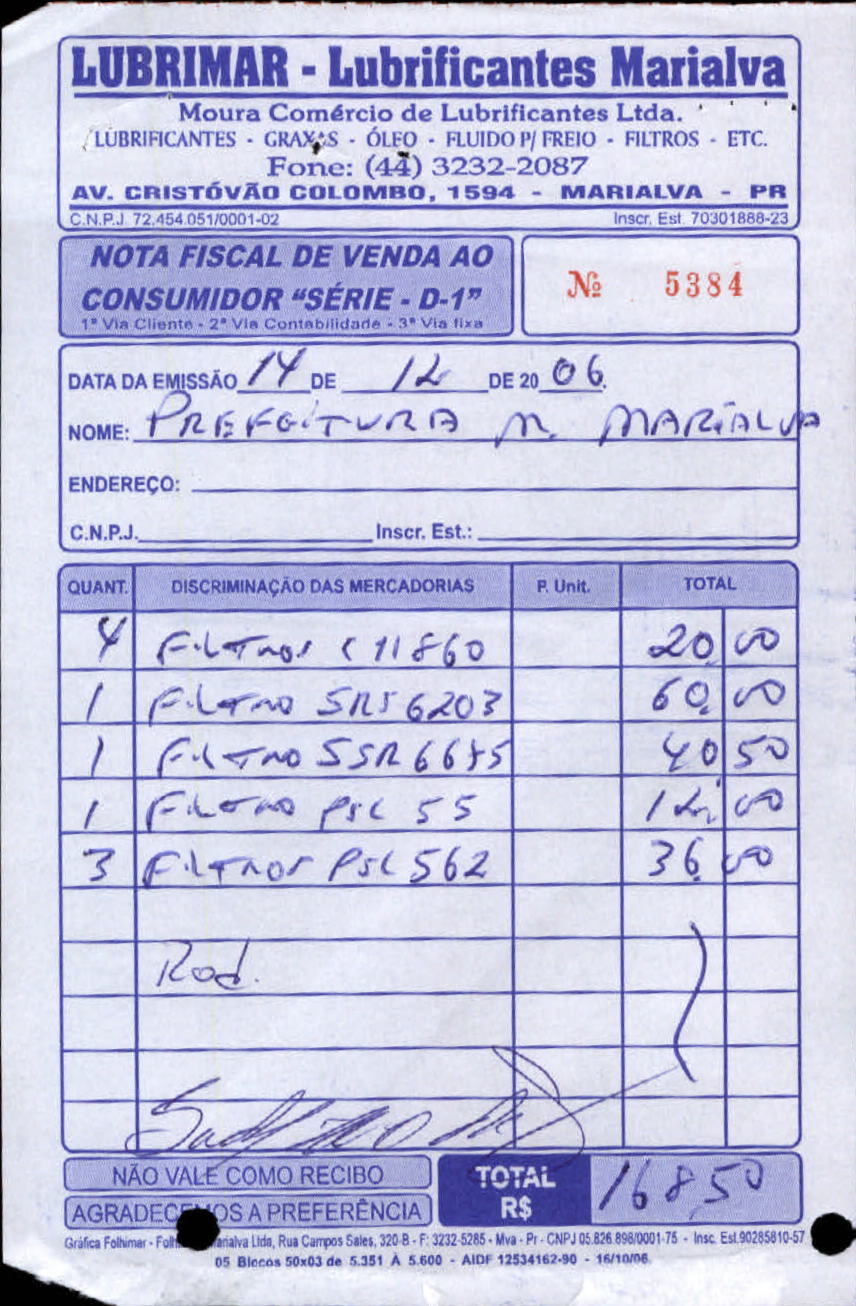 LUBRIMAR - Lubrificantes Marialva
Moura Comércio de Lubrificantes Ltda.
LUBRIFICANTES - GRAXAS - ÓLEO - FLUIDO P/ FREIO - FILTROS - ETC.
Fone: (44) 3232-2087
AV. CRISTÓVÃO COLOMBO, 1594 - MARIALVA - PR
C.N.P.J. 72.454.051/0001-02 Inscr. Est. 70301888-23
NOTA FISCAL DE VENDA AO
CONSUMIDOR "SÉRIE - D-1"
1ª Via Cliente - 2ª Via Contabilidade - 3ª Via fixa
Nº 5384
DATA DA EMISSÃO 14 DE 12 DE 20 06.
NOME: PREFEITURA M. MARIALVA
ENDEREÇO:
C.N.P.J. Inscr. Est.:
QUANT. DISCRIMINAÇÃO DAS MERCADORIAS P. Unit. TOTAL
4 Filtros C 11860 20,00
1 Filtro SRS 6203 60,00
1 Filtro SSR 40 50
1 Filtro PSL 55 12,00
3 Filtros PSL 562 36,00
Rod.
NÃO VALE COMO RECIBO
AGRADECEMOS A PREFERÊNCIA
TOTAL R$ 168,50
Gráfica Folhimar - Marialva Ltda, Rua Campos Sales, 320-B - F: 3232-5285 - Mva - Pr - CNPJ 05.826.898/0001-75 - Insc. Est.90285810-57
05 Blocos 50x03 de 5.351 À 5.600 - AIDF 12534162-90 - 16/10/06.